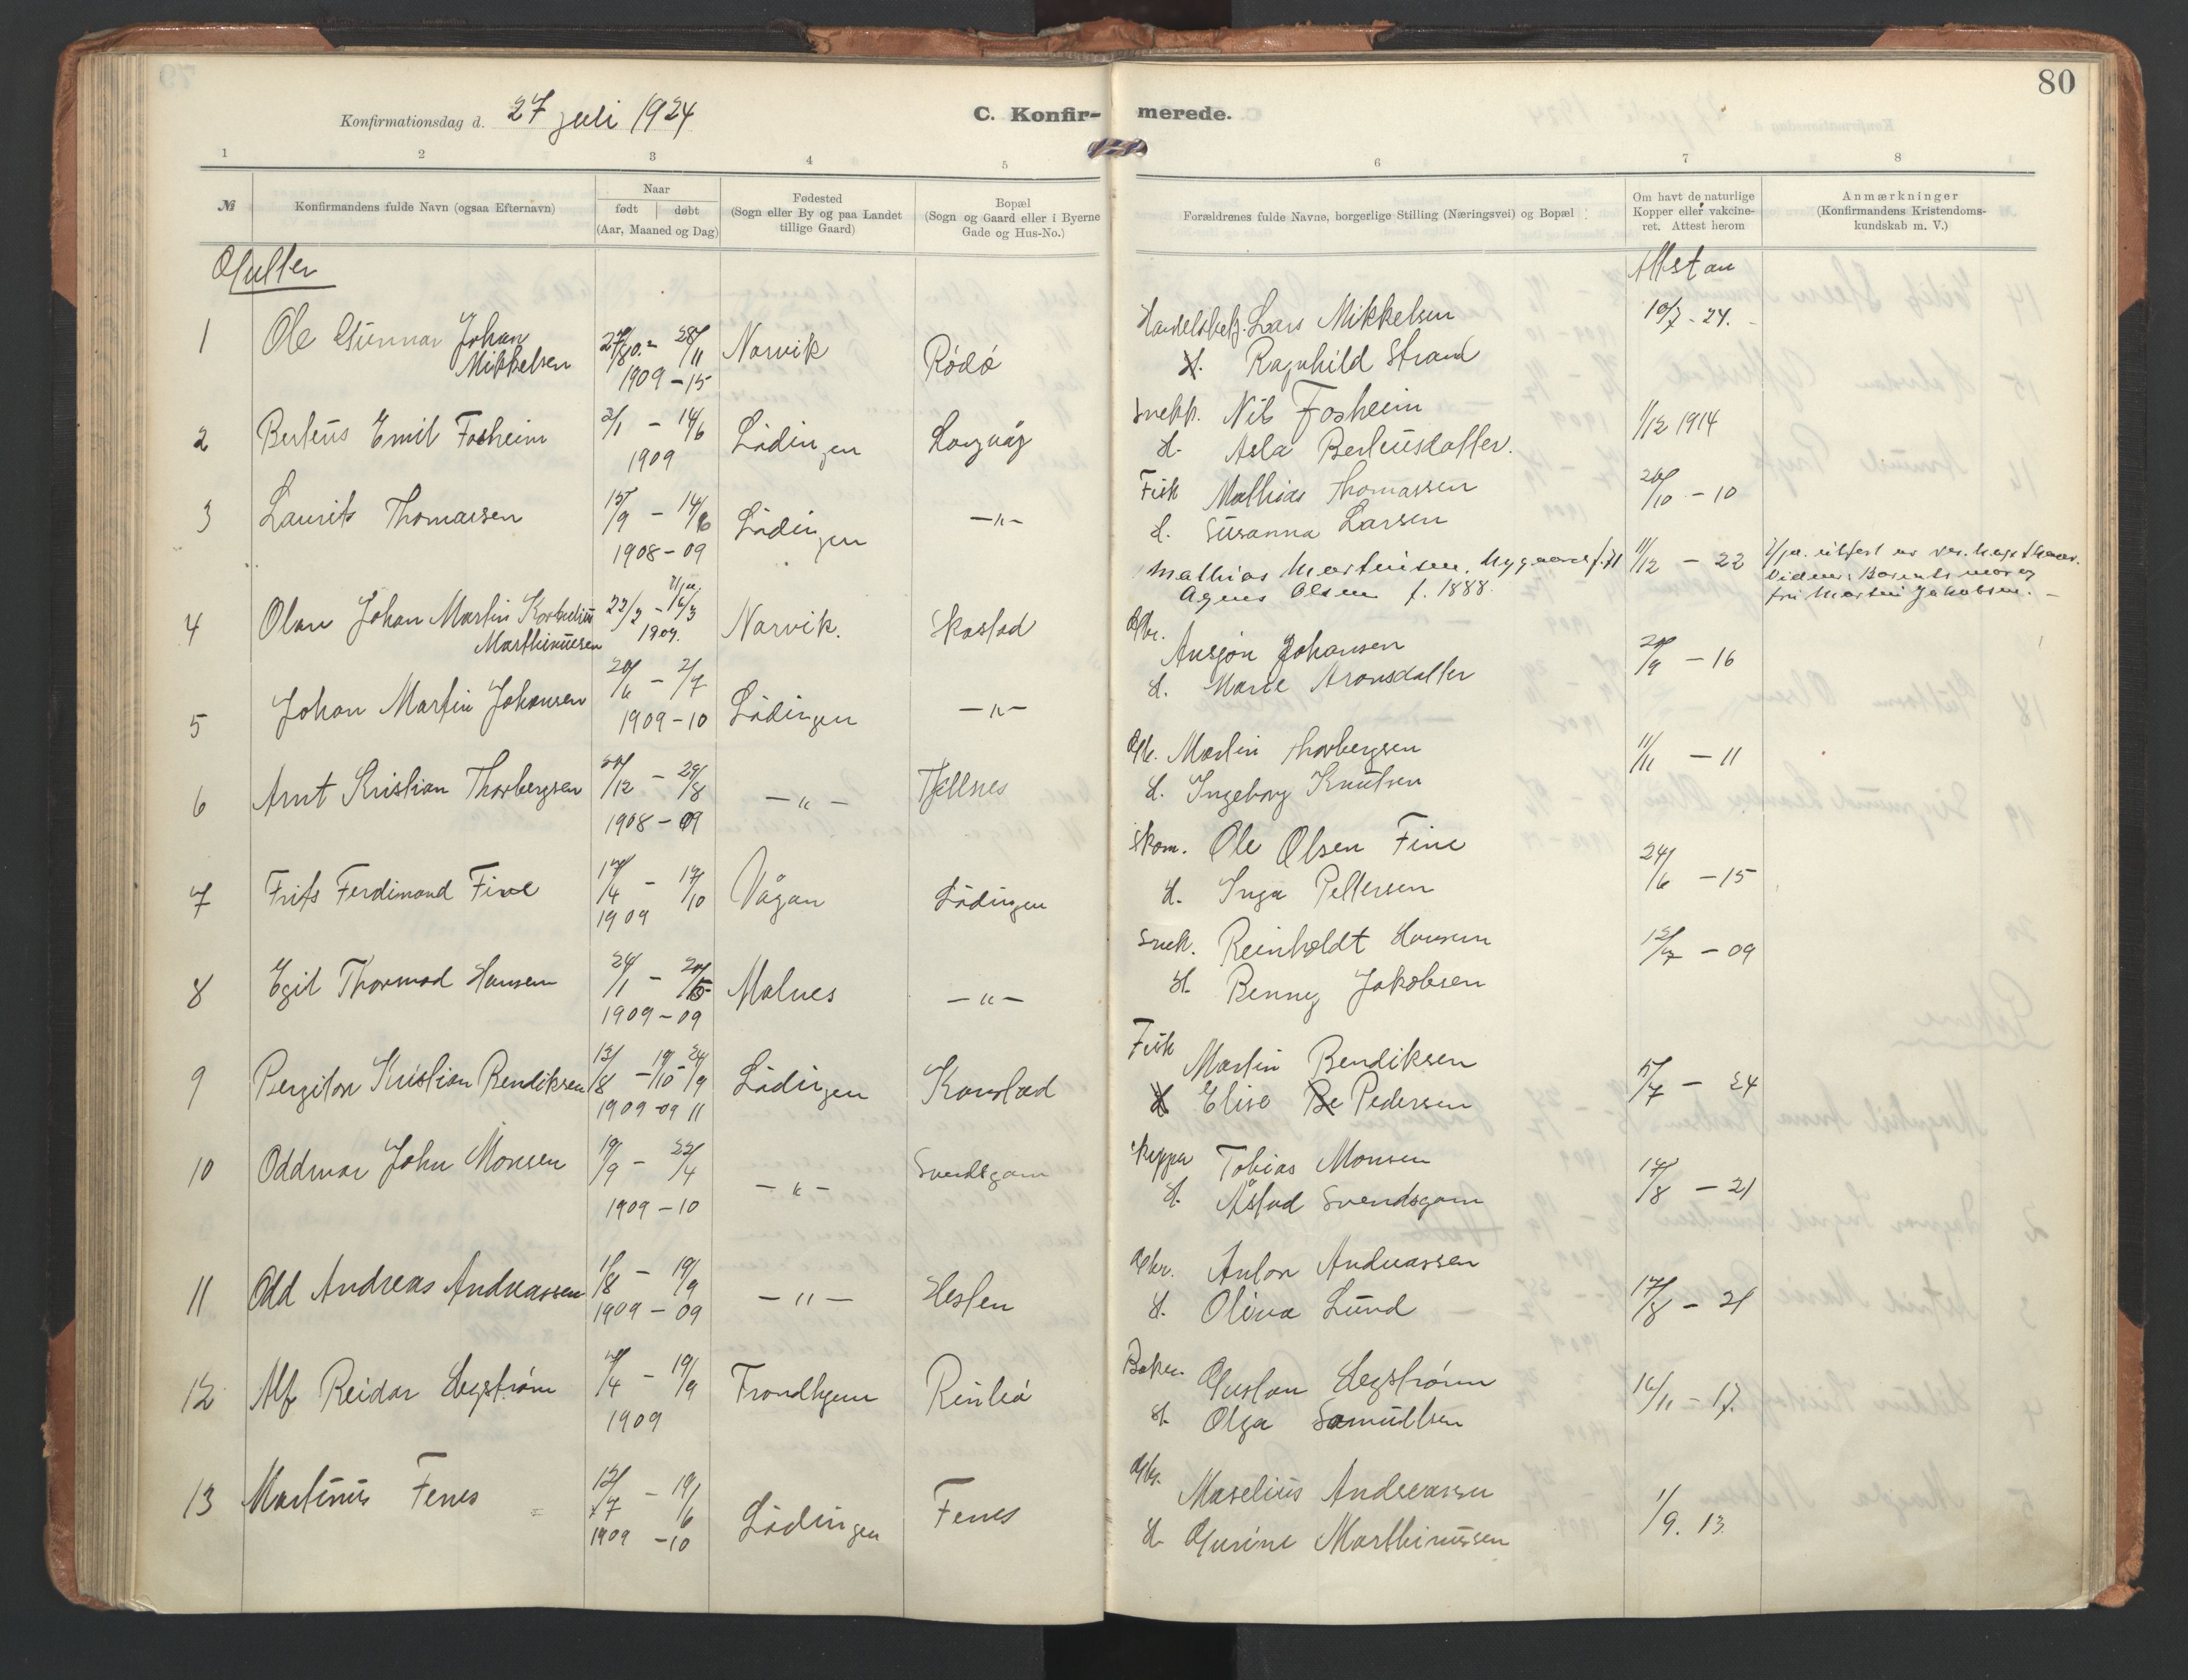 80
Konfirmationsdag d. 27 juli 1924
C. Konfir- merede.
1 2 3 4 5 6 7 8
№
Konfirmandens fulde Navn (ogsaa Efternavn)
Naar
født | døbt
(Aar, Maaned og Dag)
Fødested
(Sogn eller By og paa Landet
tillige Gaard)
Bopæl
(Sogn og Gaard eller i Byerne
Gade og Hus-No.)
Forældrenes fulde Navne, borgerlige Stilling (Næringsvei) og Bopæl
Om havt de naturlige
Kopper eller vakcine-
ret. Attest herom
Anmærkninger
(Konfirmandens Kristendoms-
kundskab m. V.)
Gutter
Attst au
1 Ole Gunnar Johan Mikkelsen 27/10 - 28/11 1909 - 15 Narvik Rødø
Lars Mikkelsen
Ragnhild Strand
10/7 - 24.
2 Berteus Emil Fosheim 2/1 - 14/6 1909 Lødingen Langvåg
Snekk. Nils Fosheim
H. Asla Berteusdatter.
1/12 1914
3 Laurits Thomassen 15/9 - 14/6 1908 - 09 Lødingen -"-
Fisk Mathias Thomassen
H. Susanna Larsen
20/10 - 10
4 Olav Johan Martin Kornelius Marthinussen 22/2 - 16/3 1909. Narvik. Skastad
Mathias Martinsen,
Agnes Olsen f. 1888.
11/12 - 22
5 Johan Martin Johansen 20/6 - 2/7 1909 - 10 Lødingen -"-
Gbr. Ansjøn Johansen
H. Marie Aronsdatter
20/9 - 16
6 Arnt Kristian Thorbergsen 20/12 - 29/8 1908 - 09 -"- Tjellnes
Martin Thorbergsen
H. Ingeborg Knutsen
11/11 - 11
7 Frits Ferdinand Fine 17/4 - 17/10 1909 Vågan Lødingen
Skom. Ole Olsen Fine
H. Inga Pettersen
24/6 - 15
8 Egil Thormod Hansen 24/1 - 20/5 1909 - 09 Malnes -"-
Snek. Reinholdt Hansen
H. Benny Jakobsen
12/7 - 09
9 Bergiton Kristian Bendiksen 13/8 - 19/10 - 24/9 1909 - 09 11 Lødingen Kanstad
Fisk Martin Bendiksen
H Elise Be Pedersen
5/7 - 24
10 Oddmar John Monsen 19/9 - 22/4 1909 - 10 -"- Svendsgam
Skipper Tobias Monsen
H. Åstad Svendsgam
17/8 - 21
11 Odd Andreas Andreassen 1/8 - 19/9 1909 - 09 -"- Hesten
Gbr. Anton Andreassen
H. Oliva Lund
17/8 - 21
12 Alf Reidar Legstrøm 7/4 - 19/9 1909 Trondhjem Rinleø
Baker Gustav Legstrøm
H. Olga Samuelsen
16/11 - 17.
13 Martinus Fenes 12/7 - 19/6 1909 - 10 Lødingen Fenes
Gbr. Maselius Andreassen
H. Gurine Marthinussen
1/9. 13.